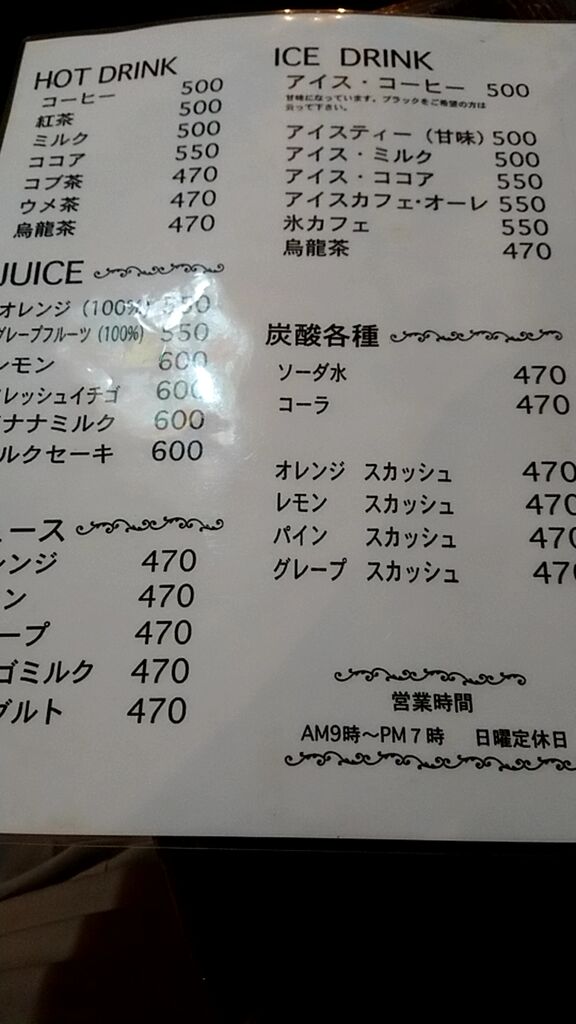 HOT DRINK
コーヒー 500
紅茶 500
ミルク 500
ココア 550
コブ茶 470
ウメ茶 470
烏龍茶 470
JUICE
オレンジ (100%) 550
グレープフルーツ (100%) 550
レモン 600
レッシュイチゴ 600
ナナミルク 600
ルクセーキ 600
ース
ンジ 470
ン 470
ープ 470
ゴミルク 470
グルト 470
ICE DRINK
アイス・コーヒー 500
甘味になっています。ブラックをご希望の方は
云って下さい。
アイスティー (甘味) 500
アイス・ミルク 500
アイス・ココア 550
アイスカフェ・オーレ 550
氷カフェ 550
烏龍茶 470
炭酸各種
ソーダ水 470
コーラ 470
オレンジ スカッシュ 470
レモン スカッシュ 470
パイン スカッシュ 470
グレープ スカッシュ 470
営業時間
AM9時～PM7時 日曜定休日